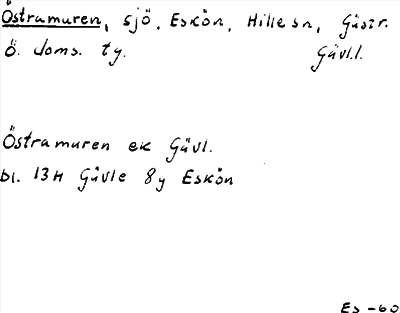 Östramuren, sjö, Eskön, Hille sn, Gästr.
Ö. doms. ty. Gävl.l.
Östramuren ek Gävl.
bl. 13H Gävle 8y Eskön
Es -60